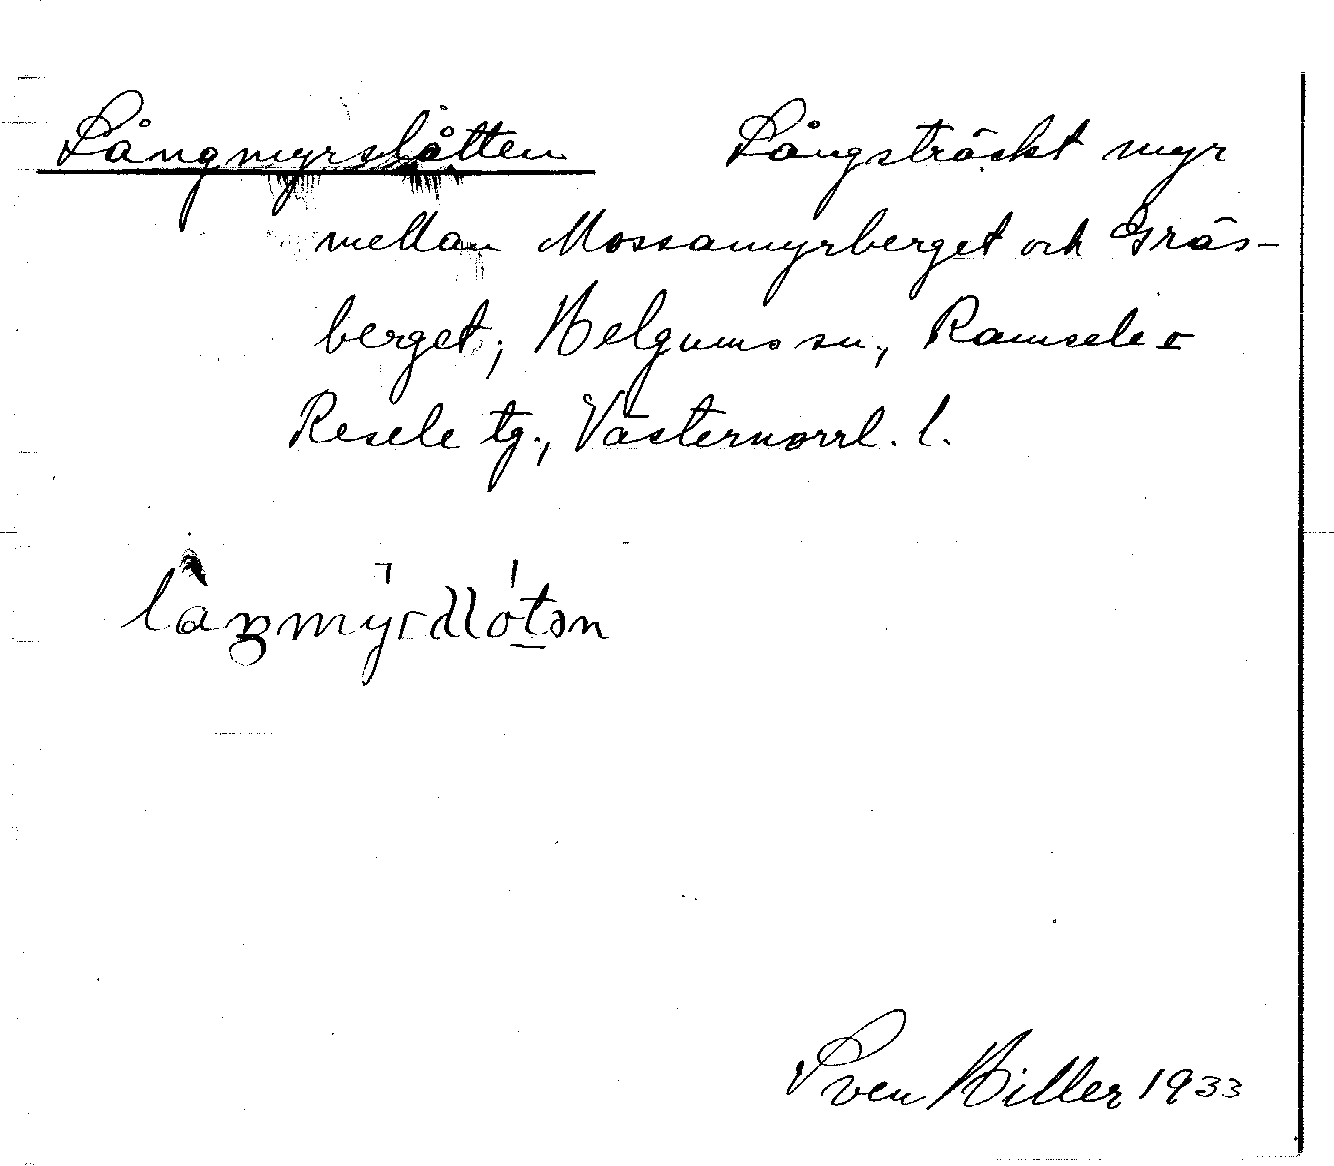 Långmyrslåtten Långsträckt myr
mellan Mossamyrberget och Gräs-
berget, Helgums sn, Ramsele o
Resele tg., Västernorrl. l.
Sven Hiller 1933